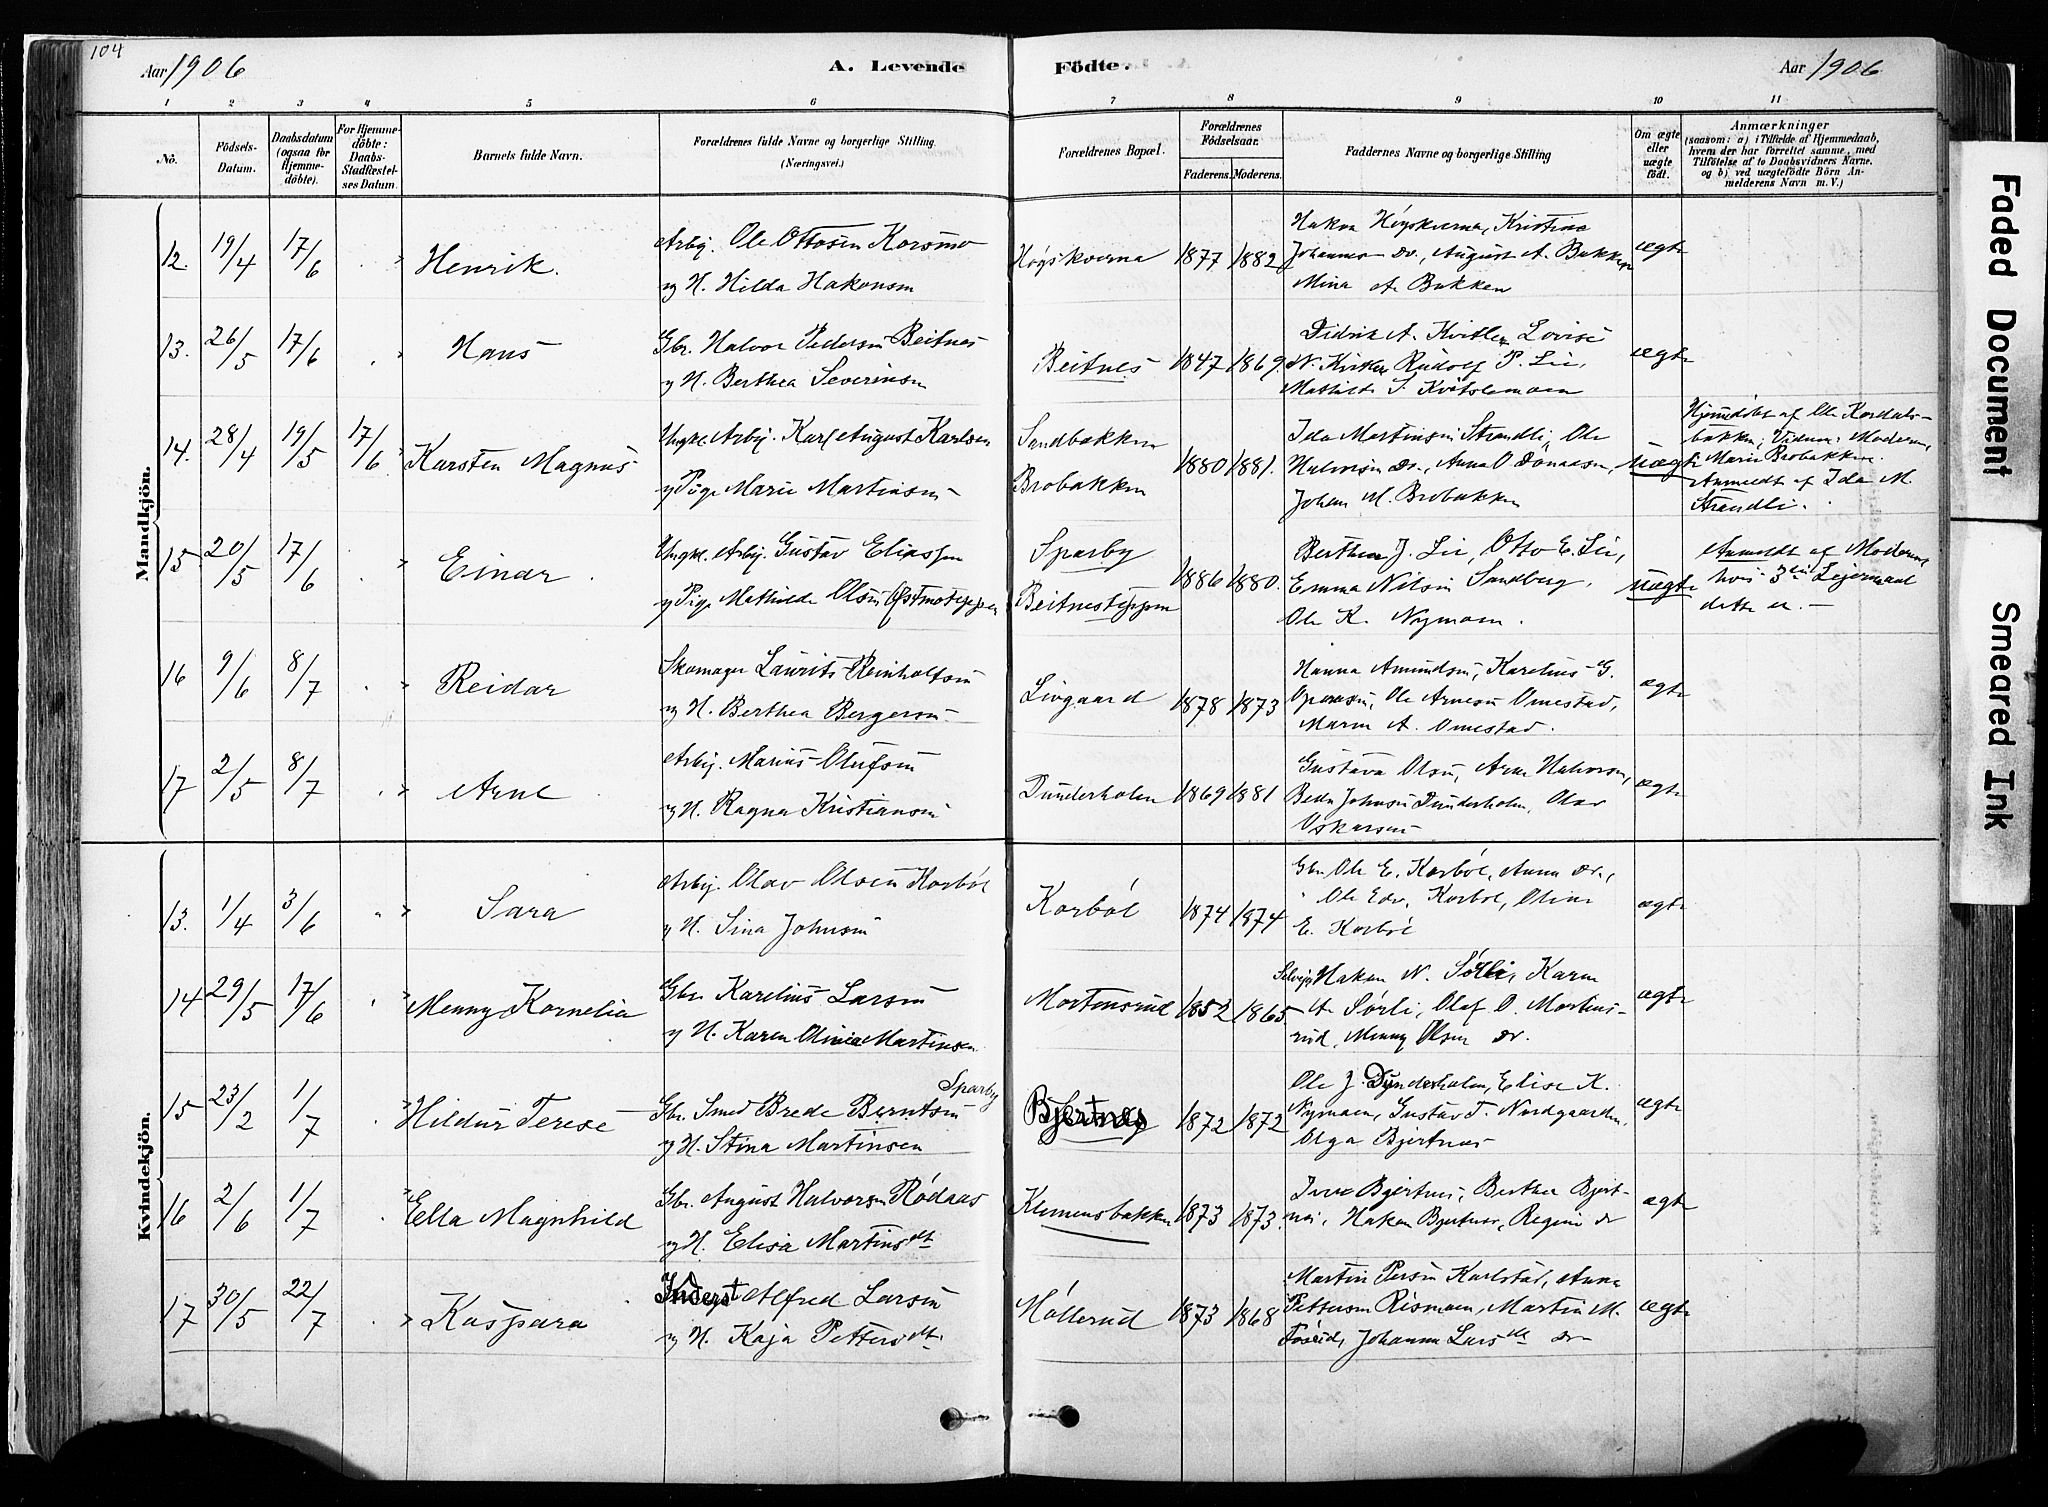 104
Aar 1906
A. Levende
Födte.
Aar 1906
1 2 3 4 5 6 7 8 9 10 11
No.
Födsels-
Datum.
Daabsdatum
(ogsaa for
Hjemme-
döbte).
For Hjemme-
döbte:
Daabs-
Stadfæstel-
ses Datum.
Barnets fulde Navn.
Forældrenes fulde Navne og borgerlige Stilling.
(Næringsvei.)
Forældrenes Bopæl.
Forældrenes
Födselsaar.
Faderens. Moderens.
Faddernes Navne og borgerlige Stilling
Om ægte
eller
uægte
födt.
Anmærkninger
(saasom: a) i Tilfælde af Hjemmedaab,
hvem der har forrettet samme, med
Tilföielse af to Daabsvidners Navne,
og b) ved uægtefödte Börn An-
melderens Navn m. V.)
Mandkjön.
12. 19/4 17/6 . " Henrik.
Arbj. Ole Ottosen Korsmo
og H. Hilda Hakonsen
Högskverna 1877 1882
Hakon Högskverna, Kristine
Johannes Do., August A. Bakken
Mina A. Bakken
ægte
13. 26/5 17/6 . " Hans
Gbr. Halvor Pedersen Beitnes
og H. Berthea Severinsen
Beitnes 1847 1869.
Didrik A. Lovise
N. Rudolf P. Lie,
Mathilde S.
ægte
14. 28/4 19/5 17/6. Karsten Magnus
Ungkl. Arbj. Karl August Karlsen
og Pige Marie Martinsen
Sandbakken
Brobakken
1880 1881.
Ida Martinsen Strandli, Ole
Halvorsen Do., Anna O.
Johan M. Brobakken
uægte
Hjemdöbt af Ole
bakken, Vidner: Moderen,
Marie Brobakken.
Anmeldt af Ida M.
Strandli.
15. 20/5 17/6 . " Einar
Ungkl. Arbj. Gustav Eliassen
og Pige Mathilde Olsen Östmoteppen
Sparby
Beitnesteppen
1886 1880.
Berthea J. Lie, Otto E. Lie,
Emma Nilsen Sandberg,
Ole K. Nymoen.
uægte
Anmeldt af Moderen,
hvis 3die Leiermaal
dette er. —
16 9/6 8/7 . " Reidar
Skomager Laurits Reinholtsen
og H. Berthea Bergersen
Livgaard 1878 1873
Hanna Amundsen, Karelius G.
Ole Arnesen Omestad,
Maren A. Omestad.
ægte
17 2/5 8/7 . " Arne
Arbj. Marius Olufsen
og H. Ragna Kristiansen
Dunderholen 1869 1881
Gustava Olsen, Arne Halvorsen,
Johnsen Dunderholen, Olav
Oskarsen
ægte
Kvindekjön.
13. 1/4 3/6 " " Sara
Arbj. Olav Olsen Korböl
og H. Sina Johnsen
Korböl 1874 1874
Gbr. Ole E. Korböl, Anna Do.,
" Ole Edv. Korböl, Oline
E. Korböl
ægte
14 29/5 17/6 " " Menny Kornelia
Gbr. Karelius Larsen
og H. Karen Olinea Martinsen
Mortensrud 1852 1865.
Selvejer Hakon N. Sörli, Karen
A. Sörli, Olaf O. Martins-
rud, Menny Olsen Do.
ægte
15 23/2 1/7 . " Hildur Terese
Gbr. Smed Brede Berntsen Sparby
og H. Stina Martinsen
Bjertnes 1872 1872
Ole J. Dunderholen, Elise K.
Nymoen, Gustav T. Nordgaarden,
Olga Bjertnæs
ægte
16 2/6 1/7 . " Ella Magnhild
Gbr. August Halvorsen Rödaas
og H. Elisa Martinsdt.
Klemensbakken 1873 1873.
Bjertnes, Berthea Bjert-
nes, Hakon Bjertnes, Regine Do
ægte
17 30/5 22/7 . " Kaspara
Inderst Alfred Larsen
og H. Kaja Pettersdt.
Möllerud 1873 1868
Martin Persen Karlstad, Anna
Pettersen Rismoen, Martin M.
Johanna Larsdt. Do
ægte
Faded Document
Smeared Ink